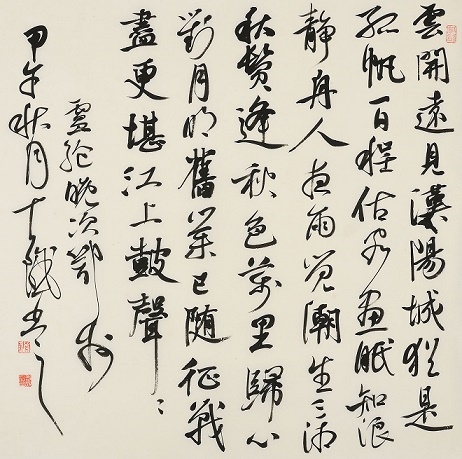 雲開遠見漢陽城猶是
孤帆一日程估客晝眠知浪
靜舟人夜雨覺潮生三湘
秋鬢逢秋色萬里歸心
對月明舊業已隨征戰
盡更堪江上鼓聲
盧綸晚次鄂州
甲午秋月書之